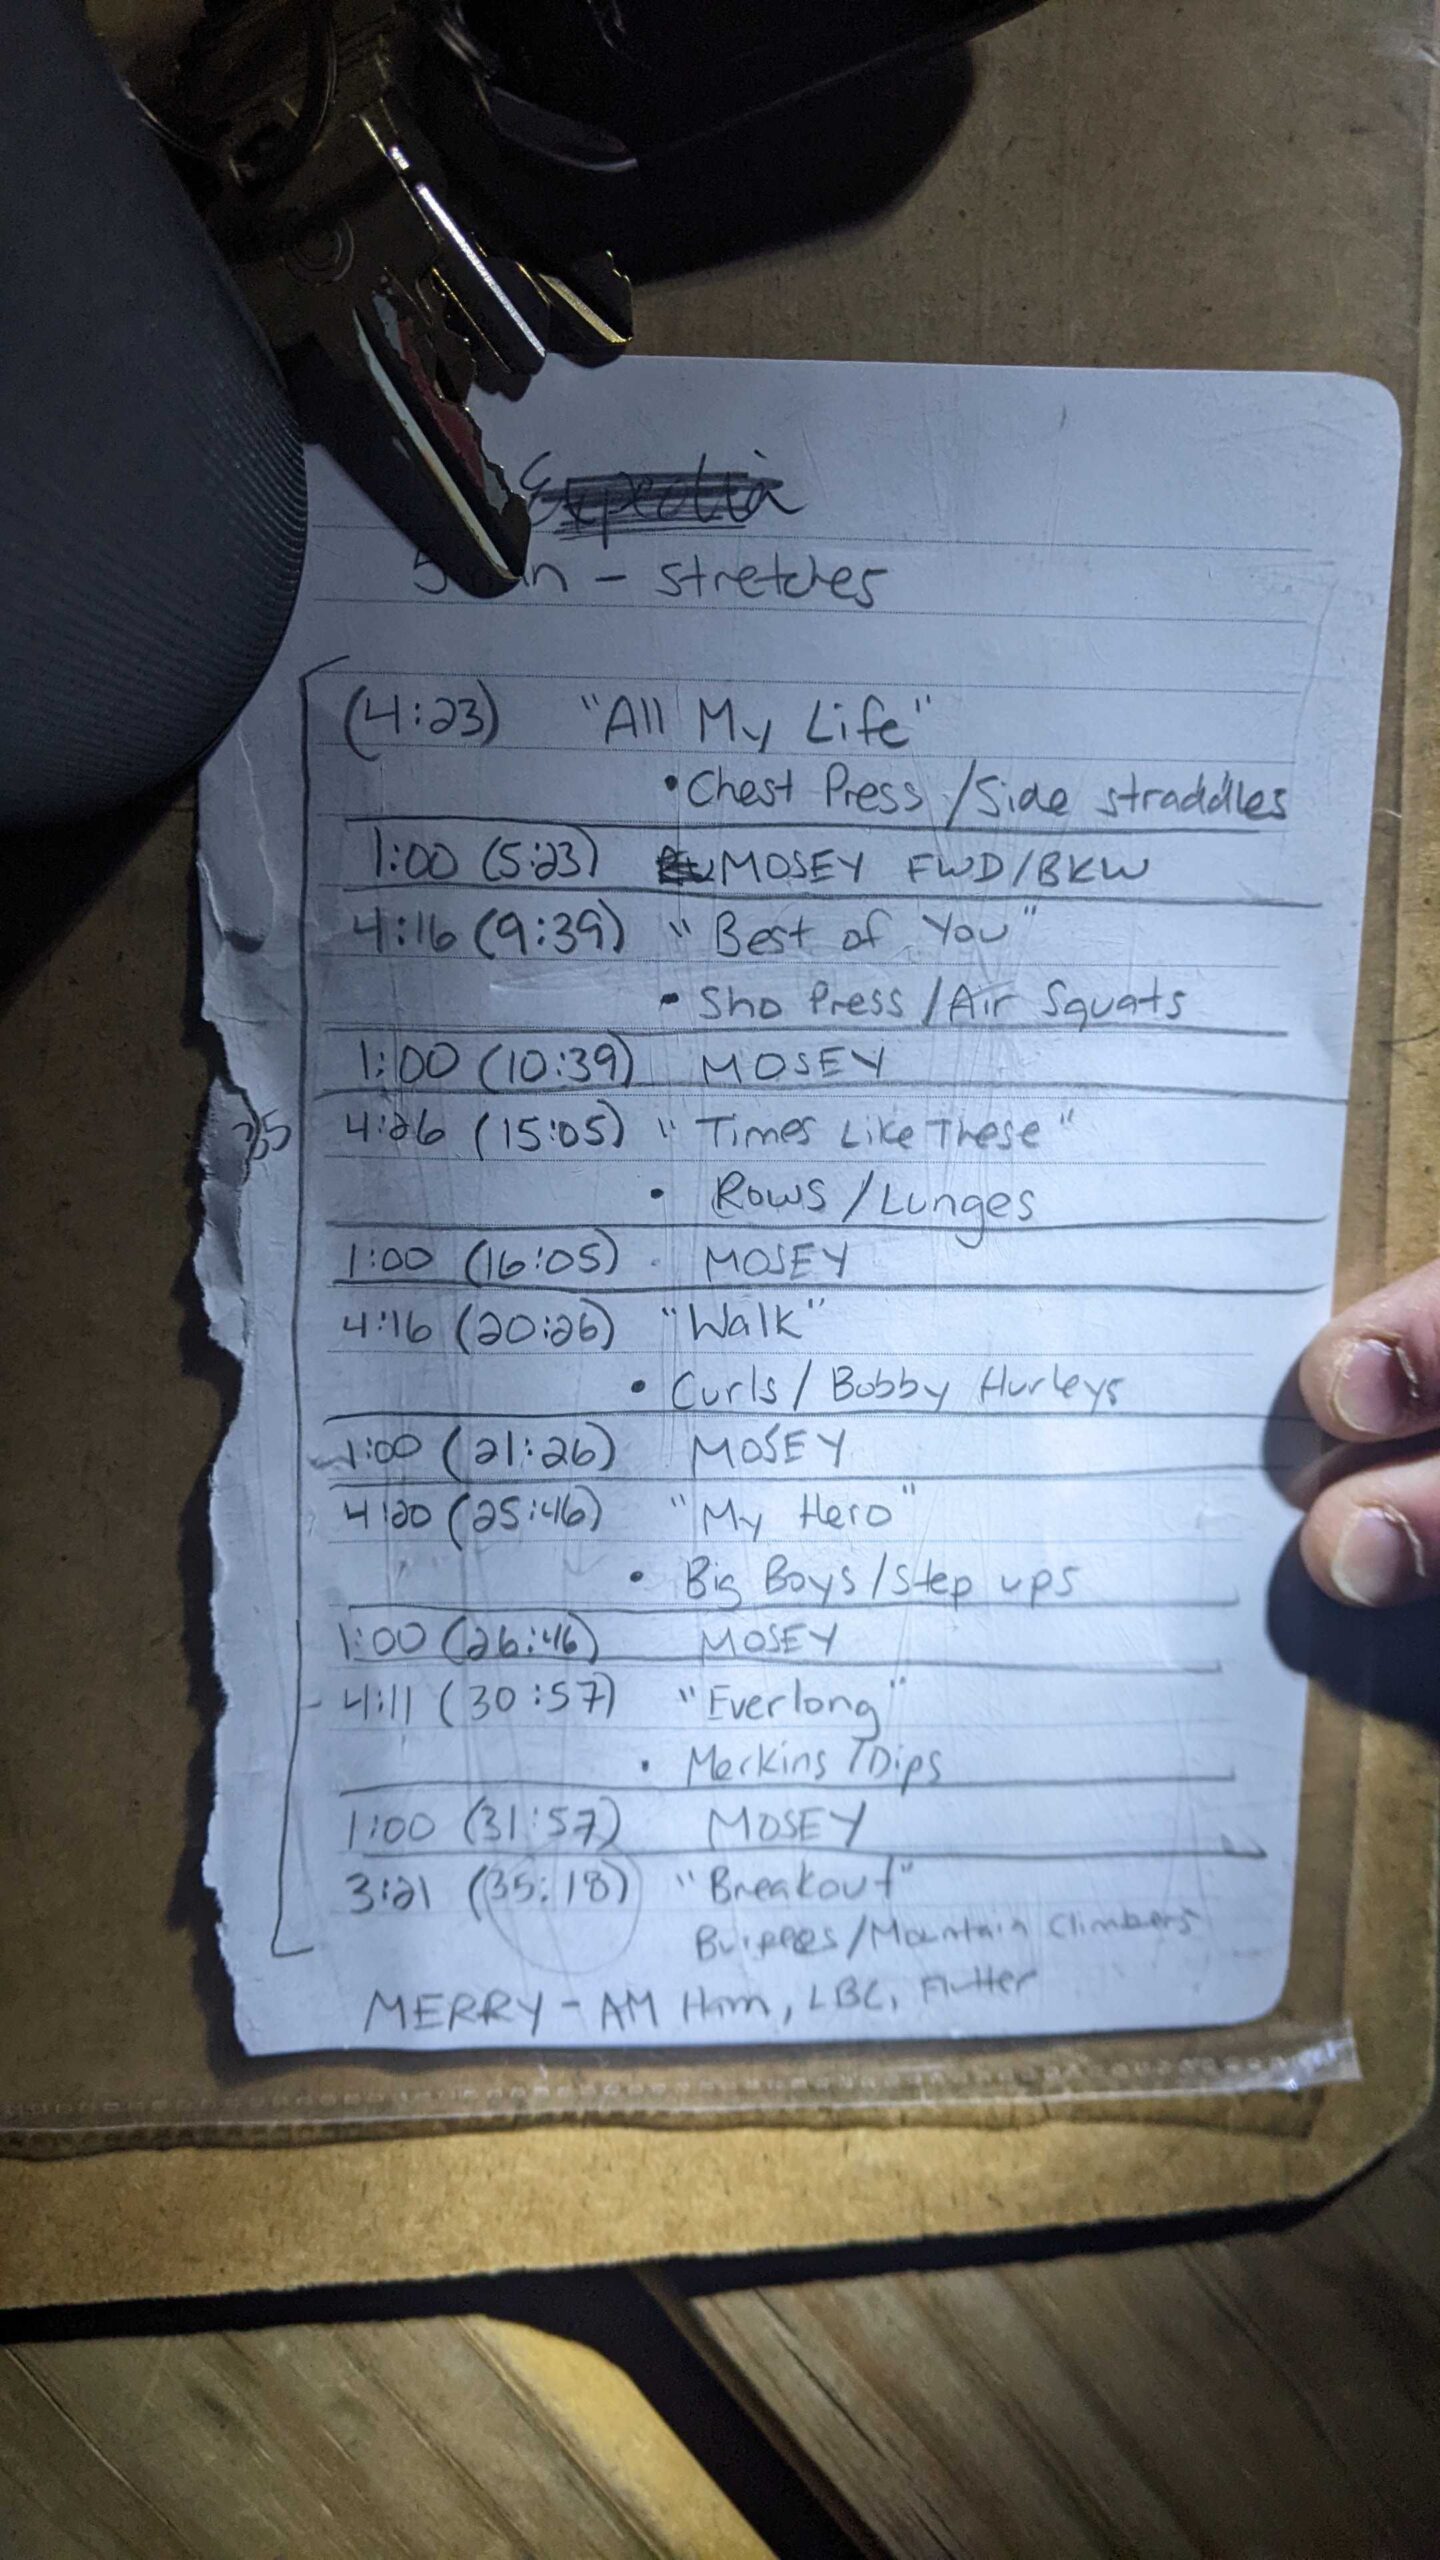 Expedia
5 – stretches
(4:23) "All My Life"
• Chest Press / Side straddles
1:00 (5:23) MOSEY FWD/BKW
4:16 (9:39) "Best of You"
• Sho Press / Air Squats
1:00 (10:39) MOSEY
35 4:26 (15:05) "Times Like These"
• Rows / Lunges
1:00 (16:05) MOSEY
4:16 (20:26) "Walk"
• Curls / Bobby Hurleys
1:00 (21:26) MOSEY
4:20 (25:46) "My Hero"
• Big Boys / Step ups
1:00 (26:46) MOSEY
4:11 (30:57) "Everlong"
• Merkins / Dips
1:00 (31:57) MOSEY
3:21 (35:18) "Breakout"
Burpees / Mountain Climbers
MERRY – AM Ham, LBC, Flutter